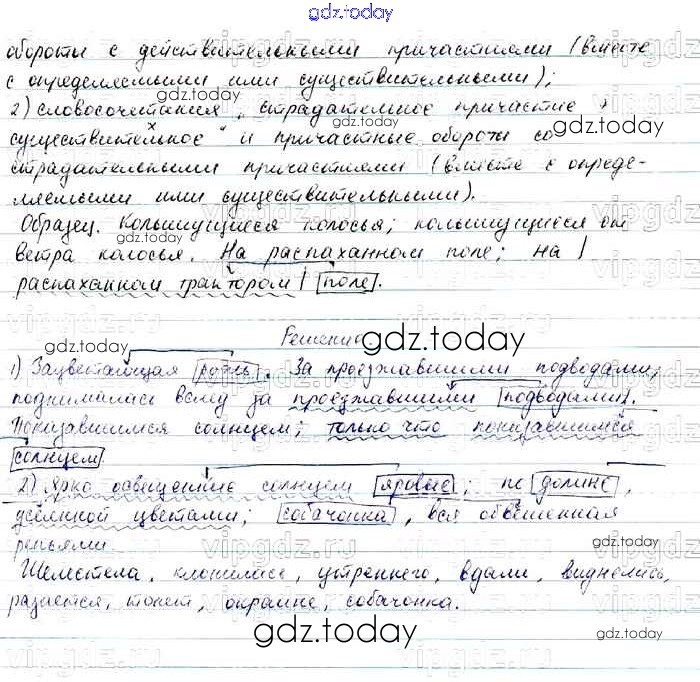 gdz.today
обороты с действительными причастиями (вместе
с определяемыми ими существительными);
2) словосочетания „страдательное причастие +
существительное" и причастные обороты со
страдательными причастиями (вместе с опреде-
ляемыми ими существительными).
Образец. Колышущиеся колосья; колышущиеся от
ветра колосья. На распаханном поле; на |
распаханном трактором | поле.
Решение
1) Зацветающая рожь. За проезжавшими подводами,
поднималась вслед за проезжавшими подводами.
Показавшимся солнцем; только что показавшимся
солнцем
2) Ярко освещенные солнцем яровые; по долине,
усеянной цветами; собачонка, вся обвешенная
репьями.
Шелестела, клонилась, утреннего, вдали, виднелись,
раздаётся, тонет, окраине, собачонка.
gdz.today